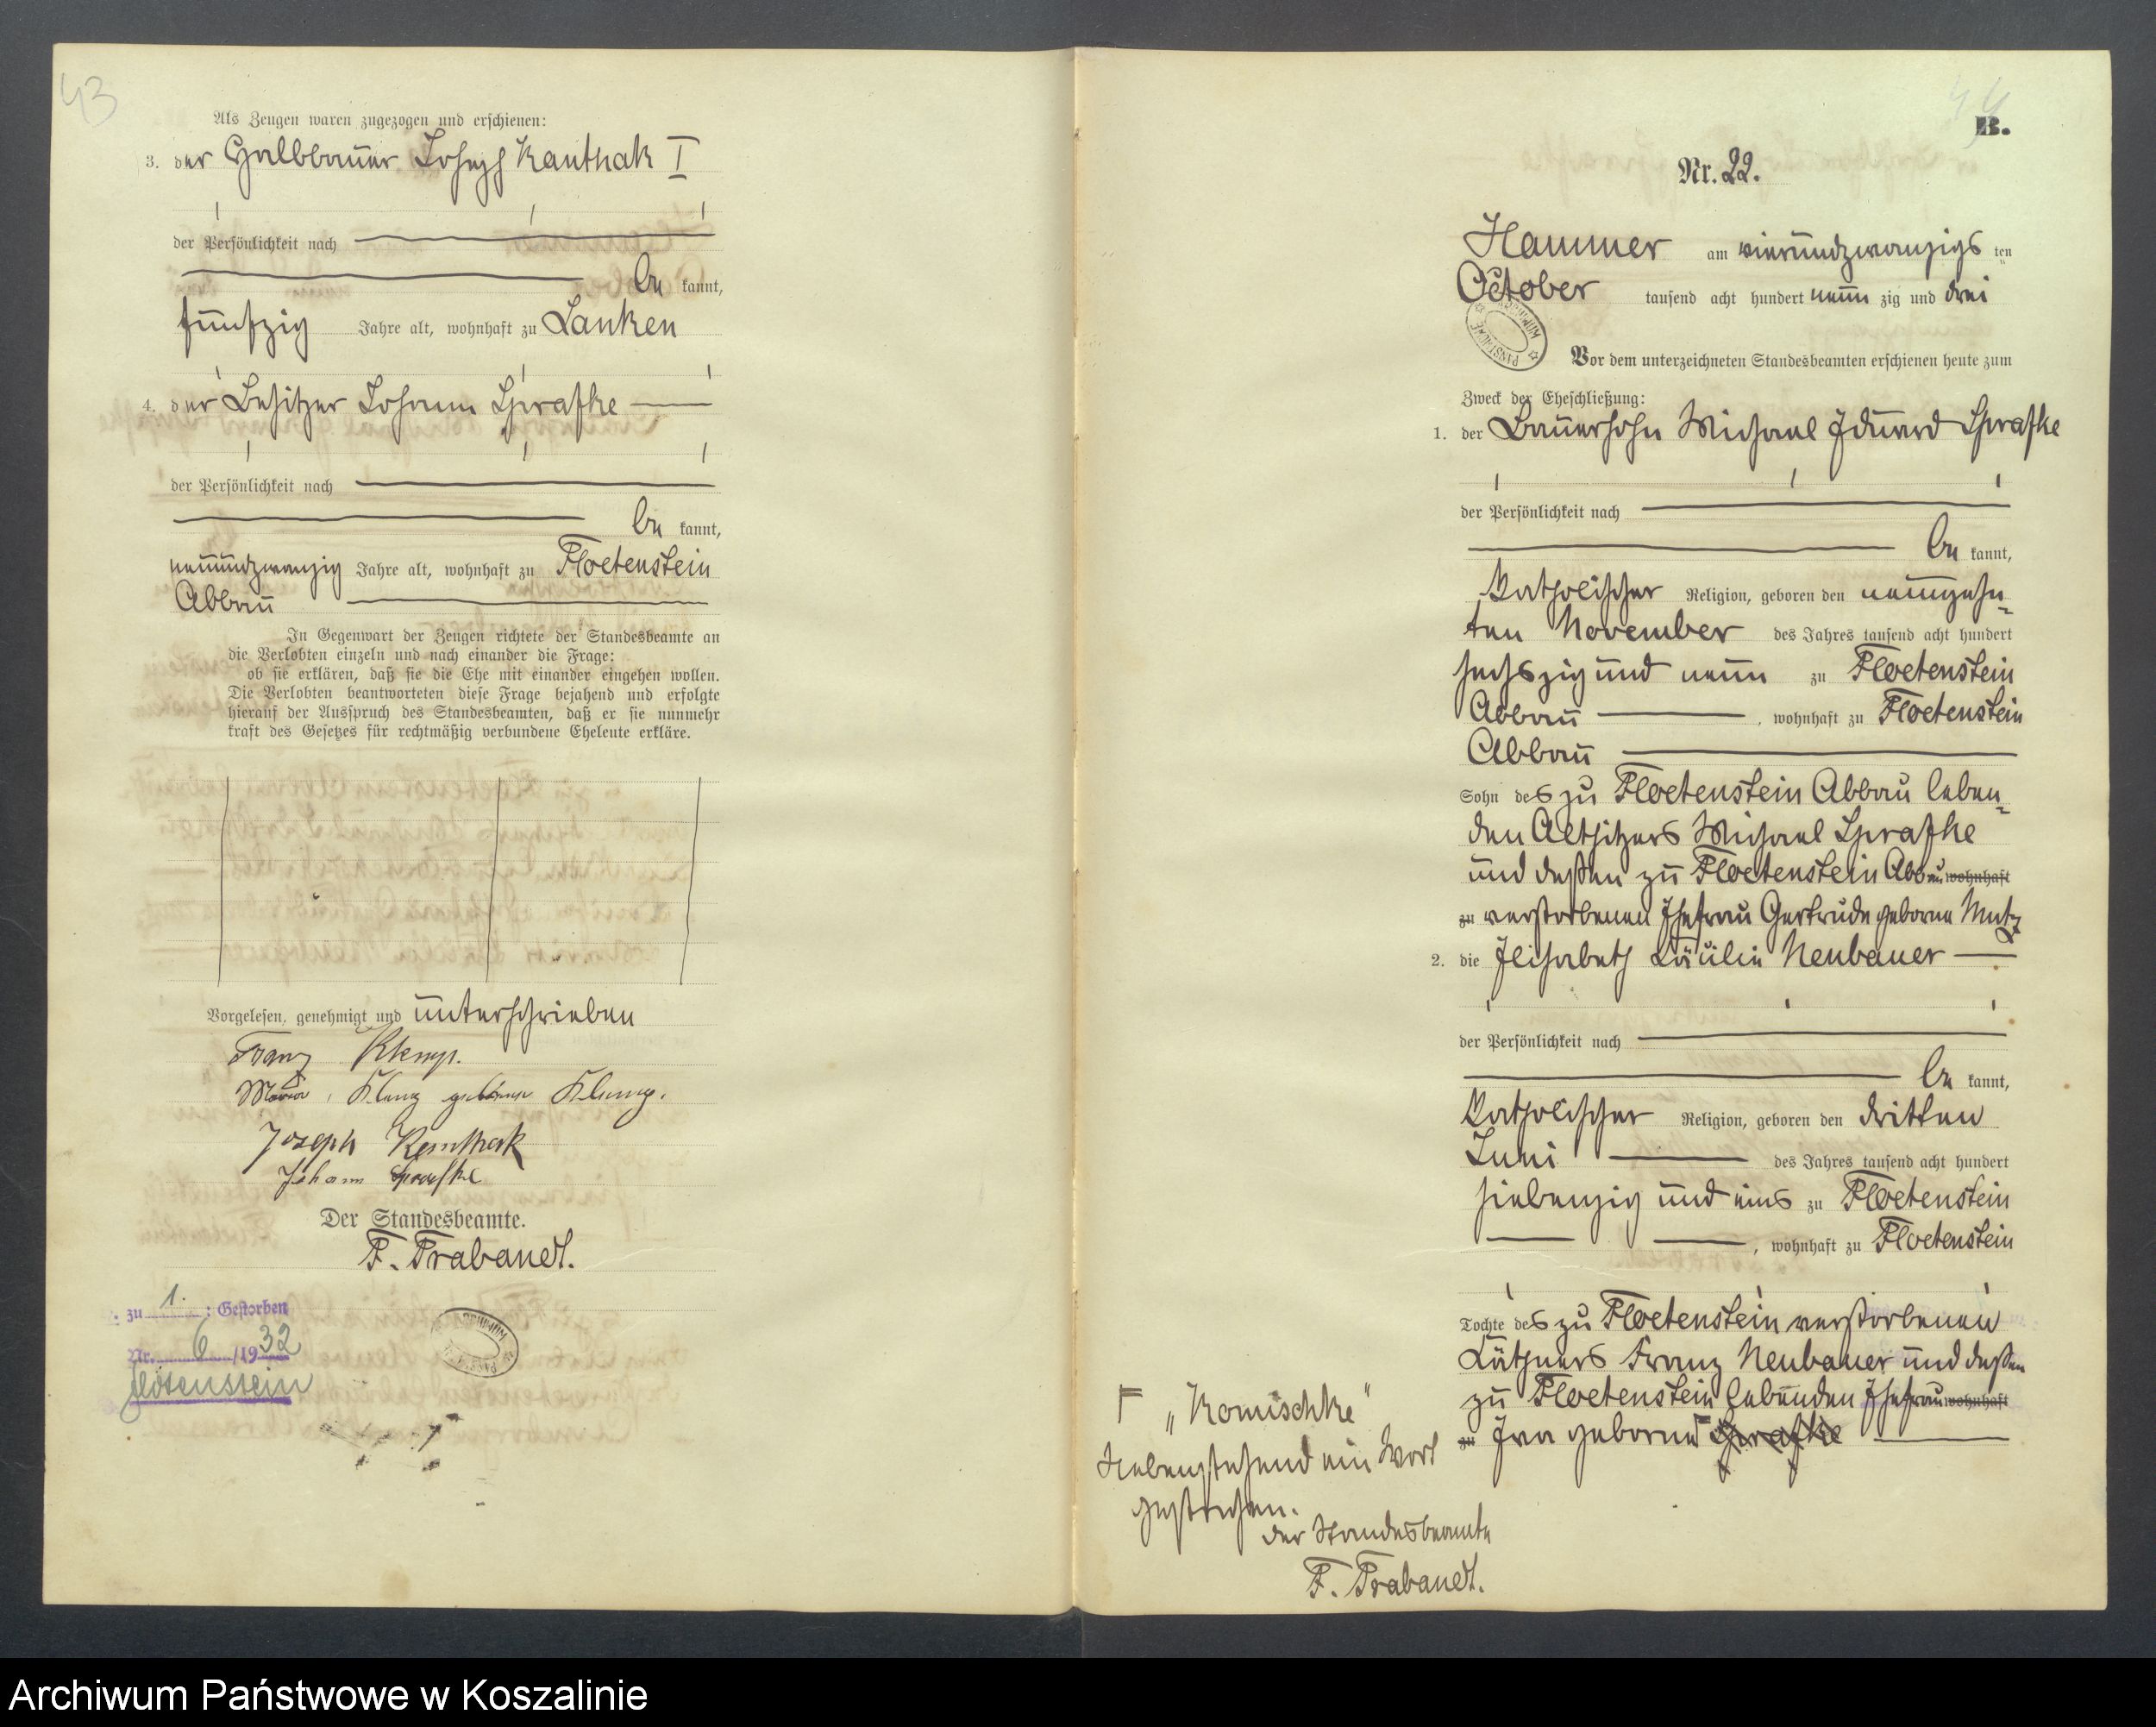 43
Als Zeugen waren zugezogen und erschienen:
3. der Halbbauer Joseph Kanthak I
der Persönlichkeit nach
be kannt,
fünfzig Jahre alt, wohnhaft zu Lanken
4. der Besitzer Johann Sprafke
der Persönlichkeit nach
be kannt,
neunundzwanzig Jahre alt, wohnhaft zu Floetenstein
Abbau
In Gegenwart der Zeugen richtete der Standesbeamte an
die Verlobten einzeln und nach einander die Frage:
ob sie erklären, daß sie die Ehe mit einander eingehen wollen.
Die Verlobten beantworteten diese Frage bejahend und erfolgte
hierauf der Ausspruch des Standesbeamten, daß er sie nunmehr
kraft des Gesetzes für rechtmäßig verbundene Eheleute erkläre.
Vorgelesen, genehmigt und unterschrieben
Franz Klemp.
Maria Klemp geborene Klemp.
Joseph Kanthak
Johann Sprafke
Der Standesbeamte.
F. Trabandt.
zu 1. : Gestorben
Nr. 6 /1932
Flötenstein
44
B.
Nr. 22.
Hammer am vierundzwanzigs ten
October tausend acht hundert neun zig und drei
Vor dem unterzeichneten Standesbeamten erschienen heute zum
Zweck der Eheschließung:
1. der Bauersohn Michael Eduard Sprafke
der Persönlichkeit nach
be kannt,
katholischer Religion, geboren den neunzehn-
ten November des Jahres tausend acht hundert
sechszig und neun zu Floetenstein
Abbau , wohnhaft zu Floetenstein
Abbau
Sohn des zu Floetenstein Abbau leben-
den Altsitzers Michael Sprafke
und dessen zu Floetenstein Abbau wohnhaft
zu verstorbenen Ehefrau Gertrude geborne Mutz
2. die Elisabeth Päulin Neubauer
der Persönlichkeit nach
be kannt,
katholischer Religion, geboren den dritten
Juni des Jahres tausend acht hundert
siebenzig und eins zu Floetenstein
, wohnhaft zu Floetenstein
Tochter des zu Floetenstein verstorbenen
Käthners Franz Neubauer und dessen
zu Floetenstein lebenden Ehefrau wohnhaft
zu Eva geborne Sprafke
Γ „Komischke"
Nebenstehend ein Wort
gestrichen.
der Standesbeamte
F. Trabandt.
Archiwum Państwowe w Koszalinie